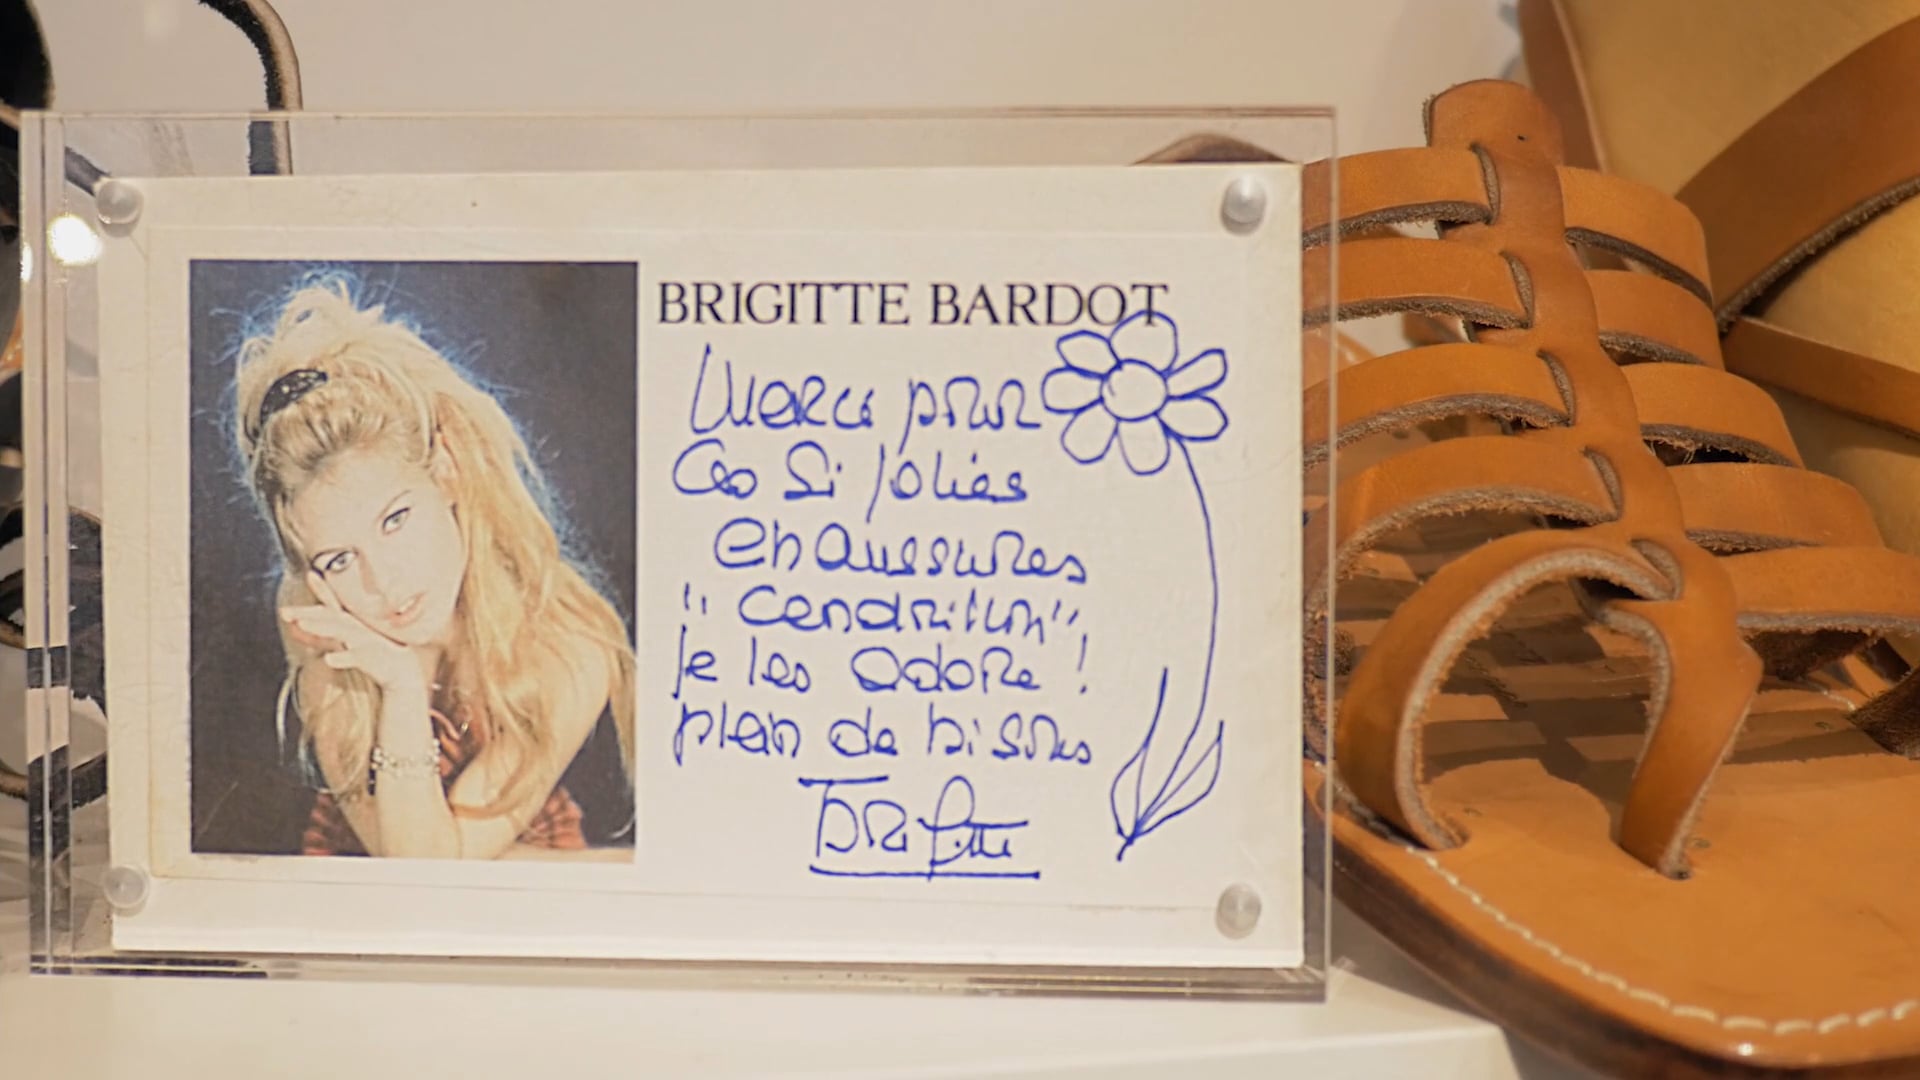 BRIGITTE BARDOT
Merci pour
Ces si jolies
chaussures
"Cendrillon"
je les adore !
plein de bisous
Brigitte